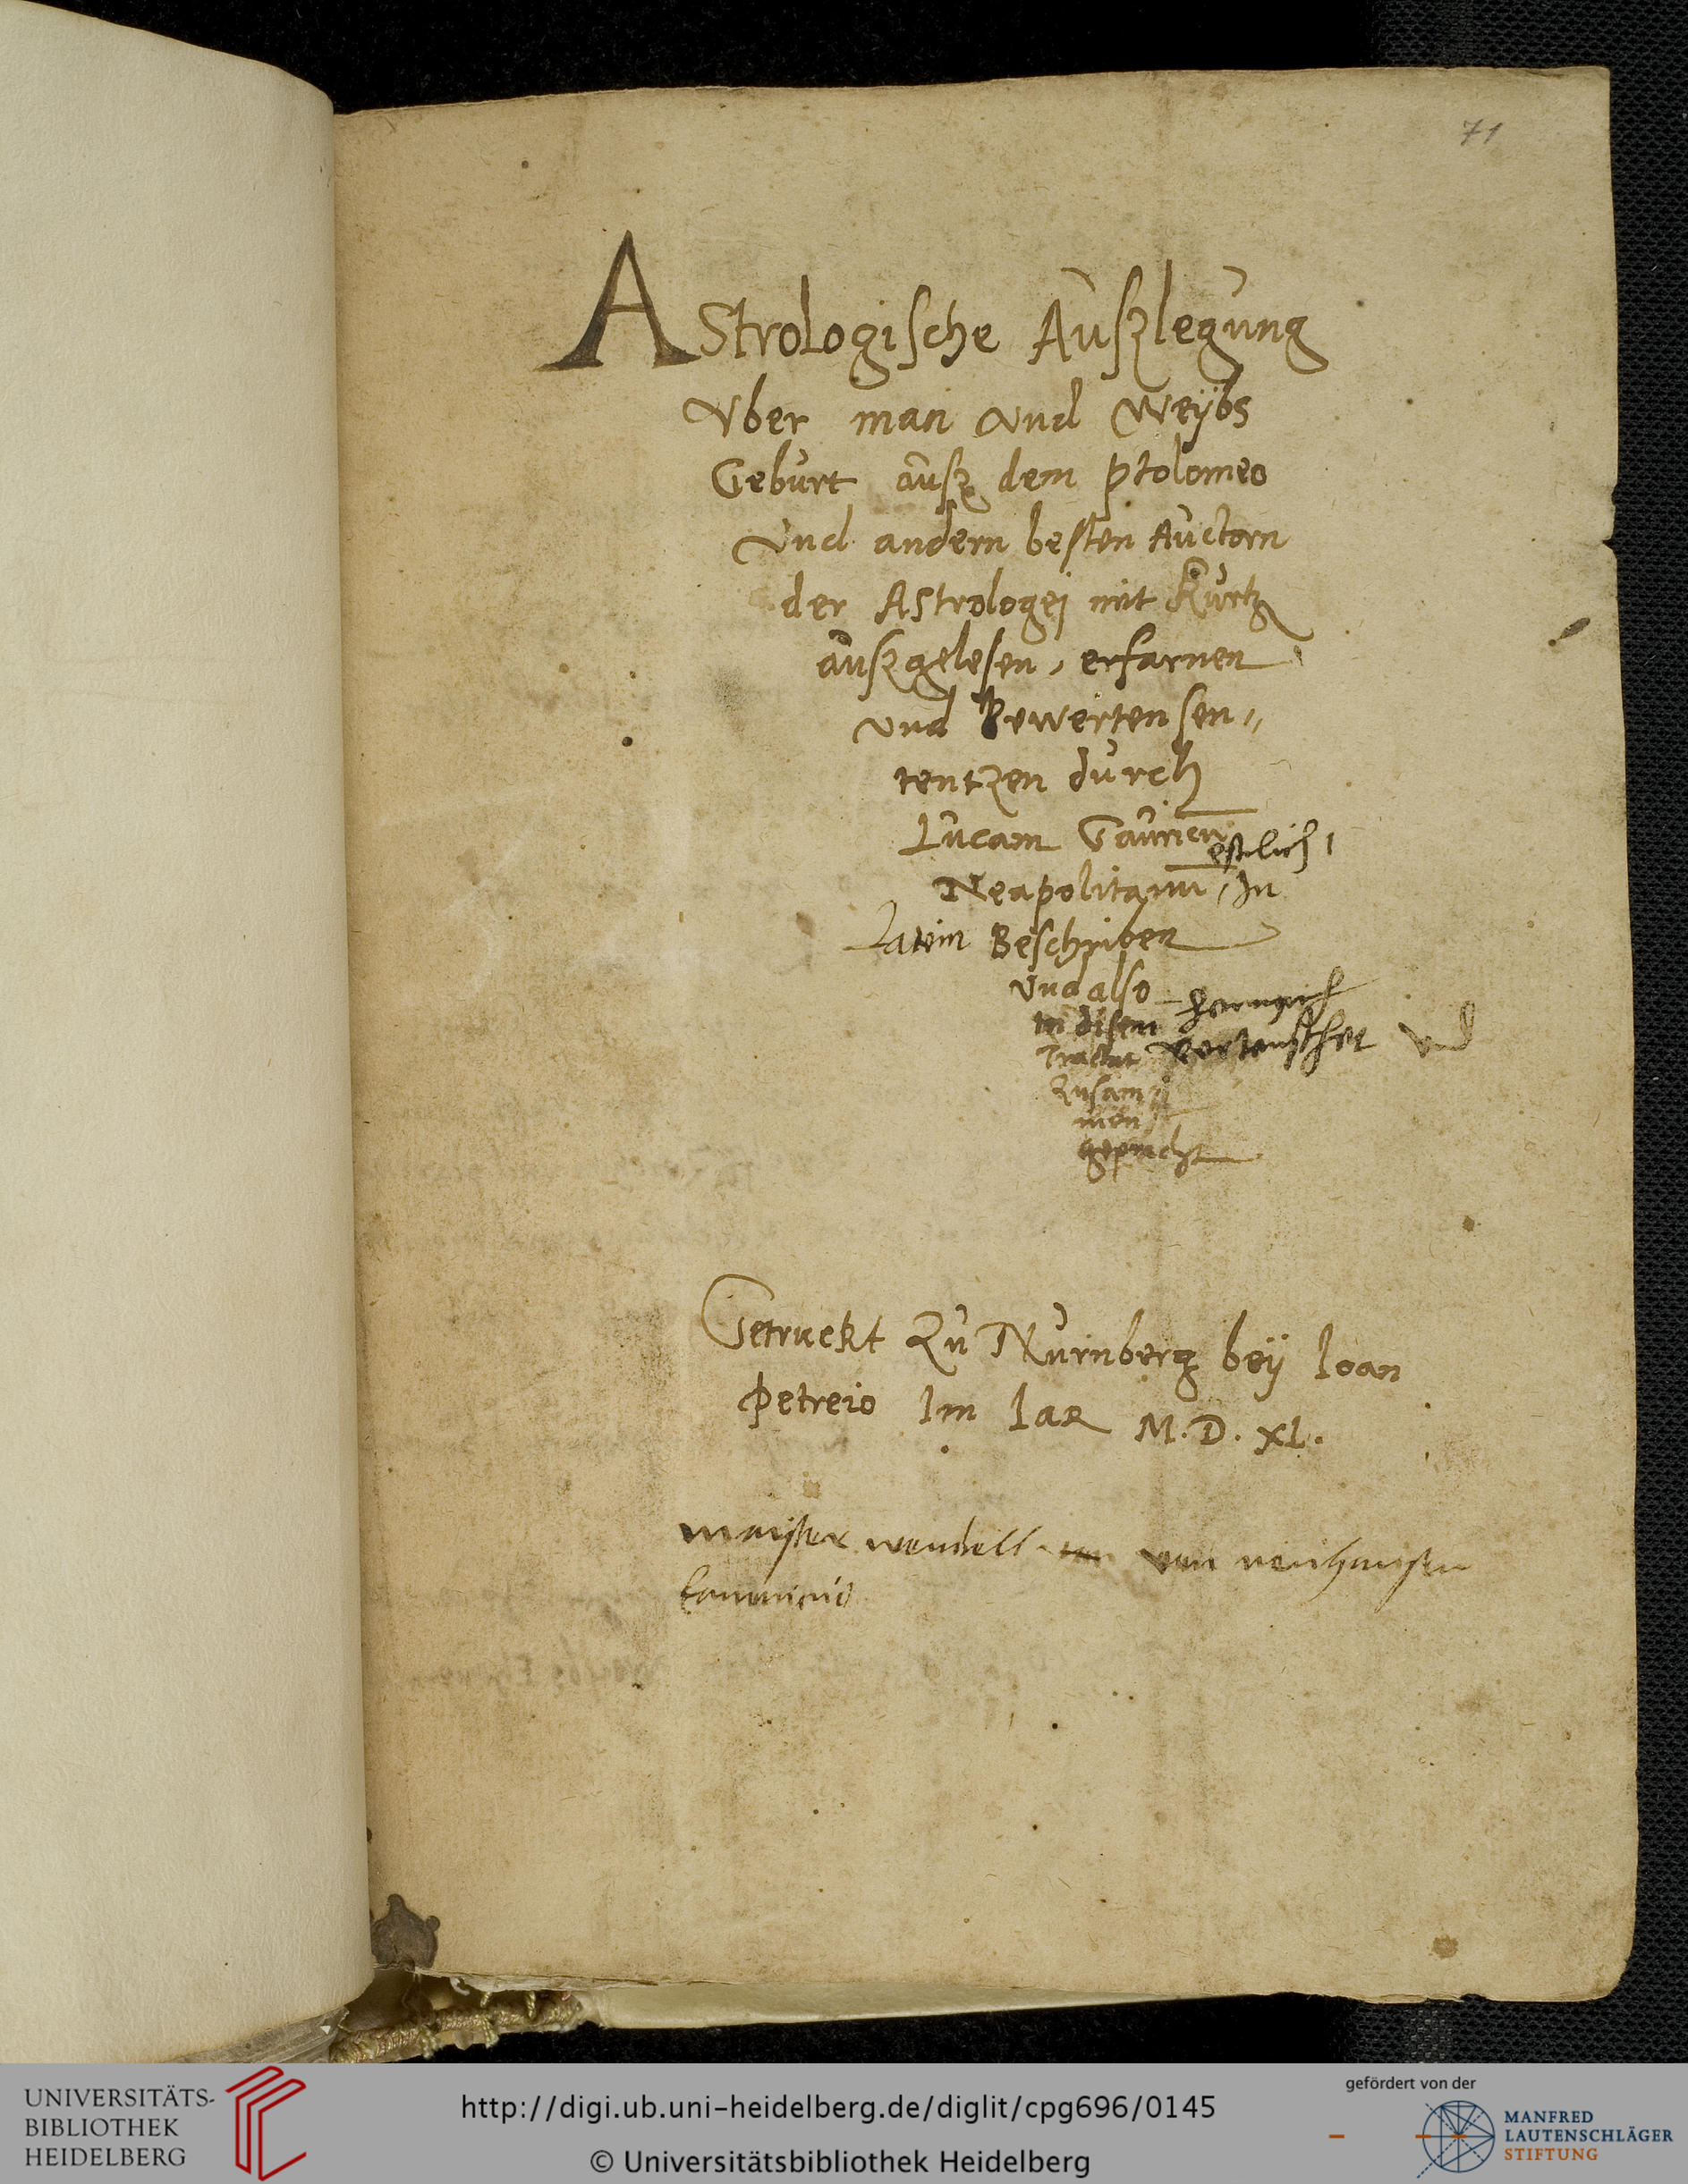 71
AStrologische Auszlegung
Vber man vnd Weÿbs
Geburt ausz dem ptolomeo
vnd andern besten Auctorn
der Astrologej mit Kurtz
auszgelesen, erfarnen
vnd bewerten sen„
tentzen durch
Lucam Gauricū
estlich
Neapolitanū, In
Latein Beschriben
vnd also hernach
in disem
Tractat verteuscht vnd
Zusam
men
gepracht
Getruckt Zu Nurnberg beÿ Ioan
Petreio Im Iar M.D.XL.
maister wendell von neuhausen
UNIVERSITÄTS-
BIBLIOTHEK
HEIDELBERG
http://digi.ub.uni-heidelberg.de/diglit/cpg696/0145
© Universitätsbibliothek Heidelberg
gefördert von der
MANFRED
LAUTENSCHLÄGER
STIFTUNG